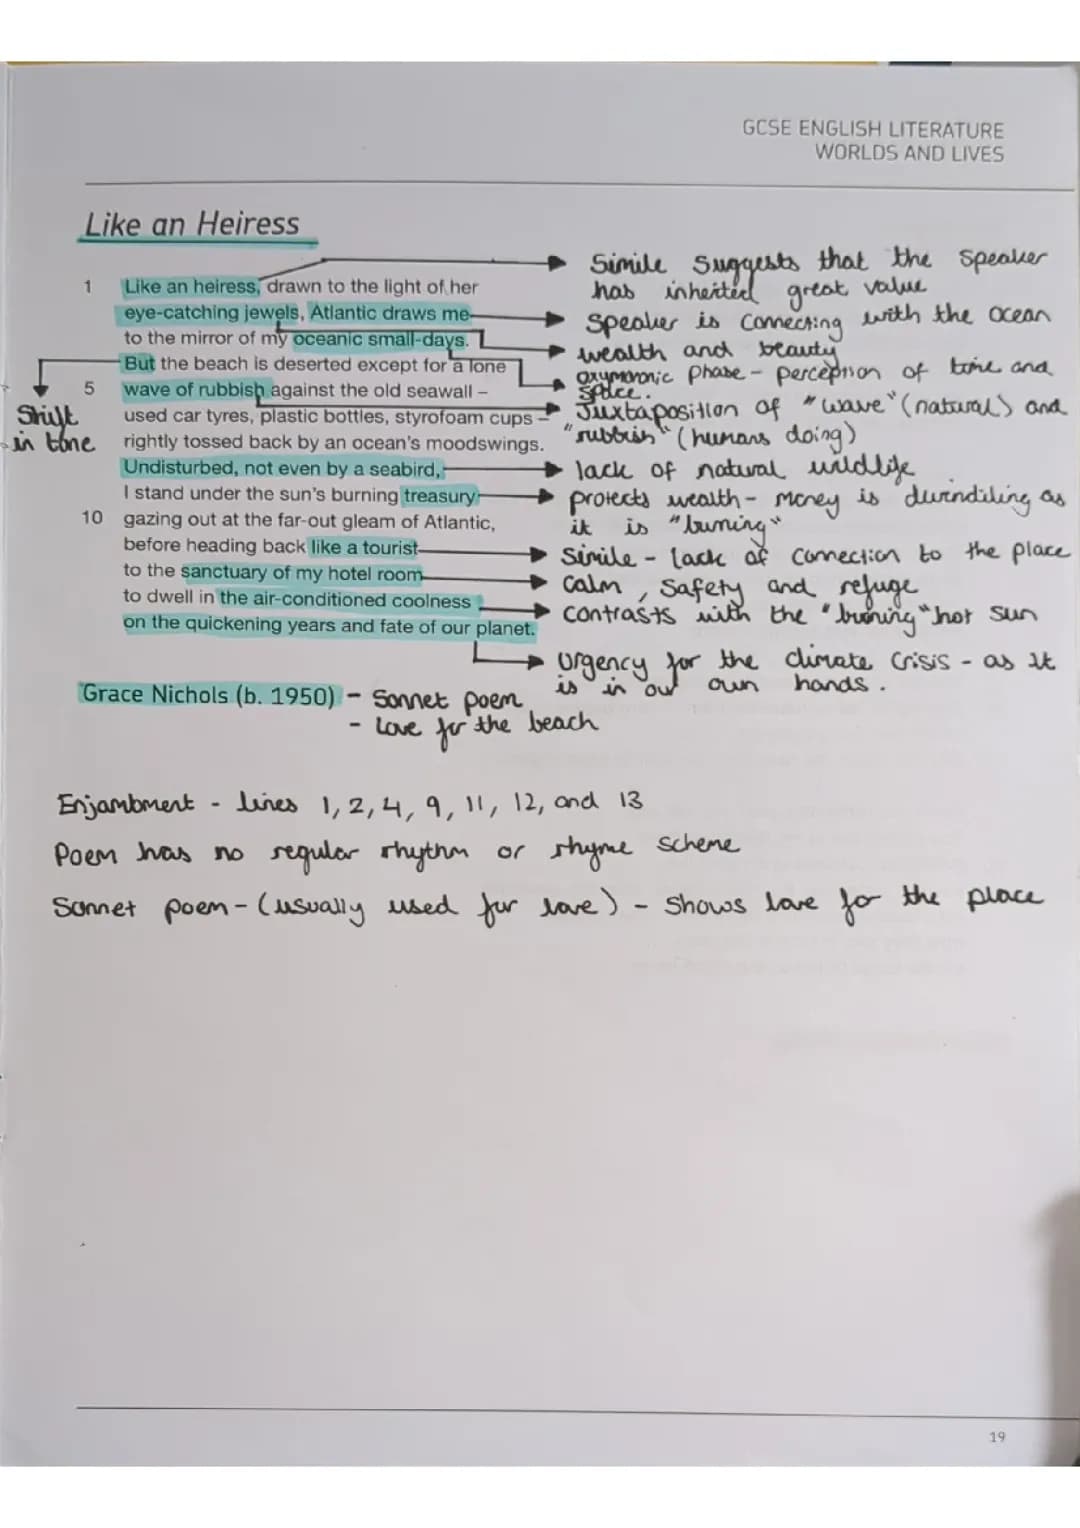 GCSE ENGLISH LITERATURE
WORLDS AND LIVES
Like an Heiress
1 Like an heiress, drawn to the light of her
eye-catching jewels, Atlantic draws me
to the mirror of my oceanic small-days.
But the beach is deserted except for a lone
5 wave of rubbish against the old seawall –
used car tyres, plastic bottles, styrofoam cups –
rightly tossed back by an ocean's moodswings.
Undisturbed, not even by a seabird,
I stand under the sun's burning treasury
10 gazing out at the far-out gleam of Atlantic,
before heading back like a tourist
to the sanctuary of my hotel room
to dwell in the air-conditioned coolness
on the quickening years and fate of our planet.
Grace Nichols (b. 1950) - Sonnet poem
- Love for the beach
Shift
in tone
Simile suggests that the speaker
has inherited great value
Speaker is connecting with the ocean
wealth and beauty
oxymoronic phase - perception of time and
space.
Juxtaposition of "wave" (natural) and
"rubbish" (humans doing)
lack of natural wildlife
protects wealth - money is dwindiling as
it is "burning"
Simile - lack of connection to the place
Calm, Safety and refuge
contrasts with the "burning" hot sun
Urgency for the climate crisis - as it
is in our own hands.
Enjambment - lines 1, 2, 4, 9, 11, 12, and 13
Poem has no regular rhythm or rhyme scheme
Sonnet poem - (usually used for love) - Shows love for the place
19